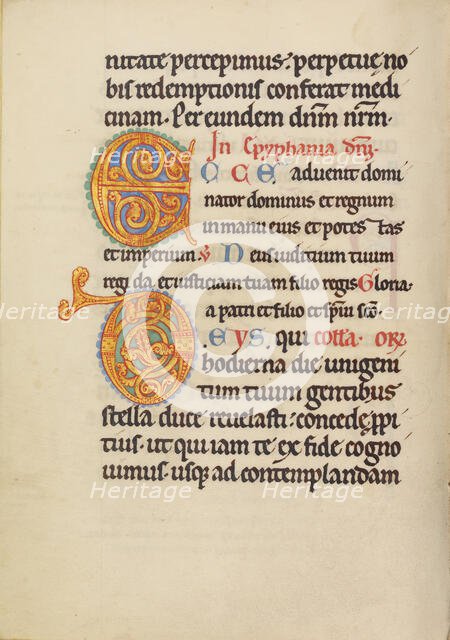 nitate percepimus. perpetue no
bis redemptionis conferat medi
cinam. Per eundem dnm nrm.
In Epyphania dni.
ECCE advenit domi
nator dominus et regnum
in manu eius et potestas
et imperium. Deus iudicium tuum
regi da. et iusticiam tuam filio regis Gloria
patri et filio et spiui sco.
DEUS. qui cotta. or
hodierna die unigeni
tum tuum gentibus
stella duce revelasti: concede ppi
tius. ut qui iam te ex fide cogno
uimus. usq ad contemplandam
Heritage
Heritage
Heritage
Heritage
Heritage
Heritage